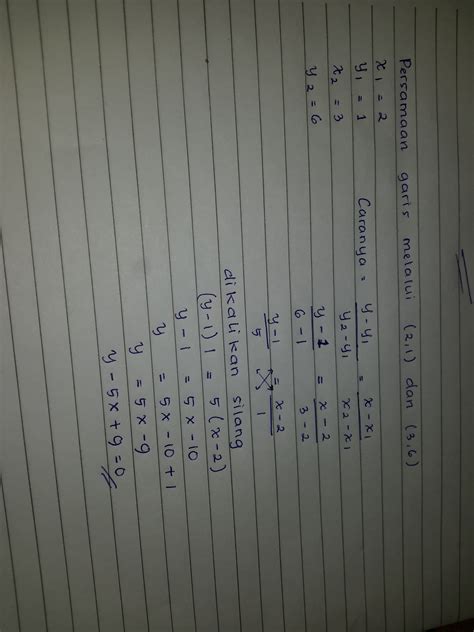 Persamaan garis melalui (2,1) dan (3,6)
x₁ = 2
y₁ = 1
x₂ = 3
y₂ = 6
Caranya = y-y₁ / y₂-y₁ = x-x₁ / x₂-x₁
y-1 / 6-1 = x-2 / 3-2
y-1 / 5 = x-2 / 1
dikalikan silang
(y-1) 1 = 5 (x-2)
y-1 = 5x-10
y = 5x-10+1
y = 5x-9
y-5x+9=0